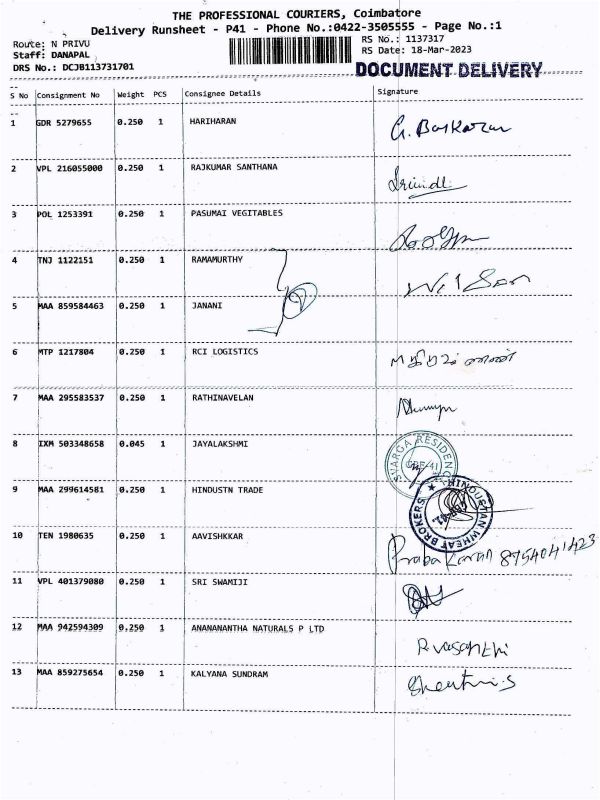 THE PROFESSIONAL COURIERS, Coimbatore
Delivery Runsheet - P41 - Phone No.:0422-3505555 - Page No.:1
Route: N PRIVU
RS No.: 1137317
Staff: DANAPAL
RS Date: 18-Mar-2023
DRS No.: DCJB113731701
DOCUMENT DELIVERY
S No Consignment No Weight PCS Consignee Details Signature
1 GDR 5279655 0.250 1 HARIHARAN G. Baskaran
2 VPL 216055000 0.250 1 RAJKUMAR SANTHANA
3 POL 1253391 0.250 1 PASUMAI VEGITABLES
4 TNJ 1122151 0.250 1 RAMAMURTHY Wilson
5 MAA 859584463 0.250 1 JANANI
6 MTP 1217804 0.250 1 RCI LOGISTICS
7 MAA 295583537 0.250 1 RATHINAVELAN
8 IXM 503348658 0.045 1 JAYALAKSHMI
SVARGA RESIDENCY
CBE-41
9 MAA 299614581 0.250 1 HINDUSTN TRADE
HINDUSTAN WHEAT BROKERS
10 TEN 1980635 0.250 1 AAVISHKKAR Praba Karan 8754041423
11 VPL 401379080 0.250 1 SRI SWAMIJI
12 MAA 942594309 0.250 1 ANANANANTHA NATURALS P LTD R.vasanthi
13 MAA 859275654 0.250 1 KALYANA SUNDRAM